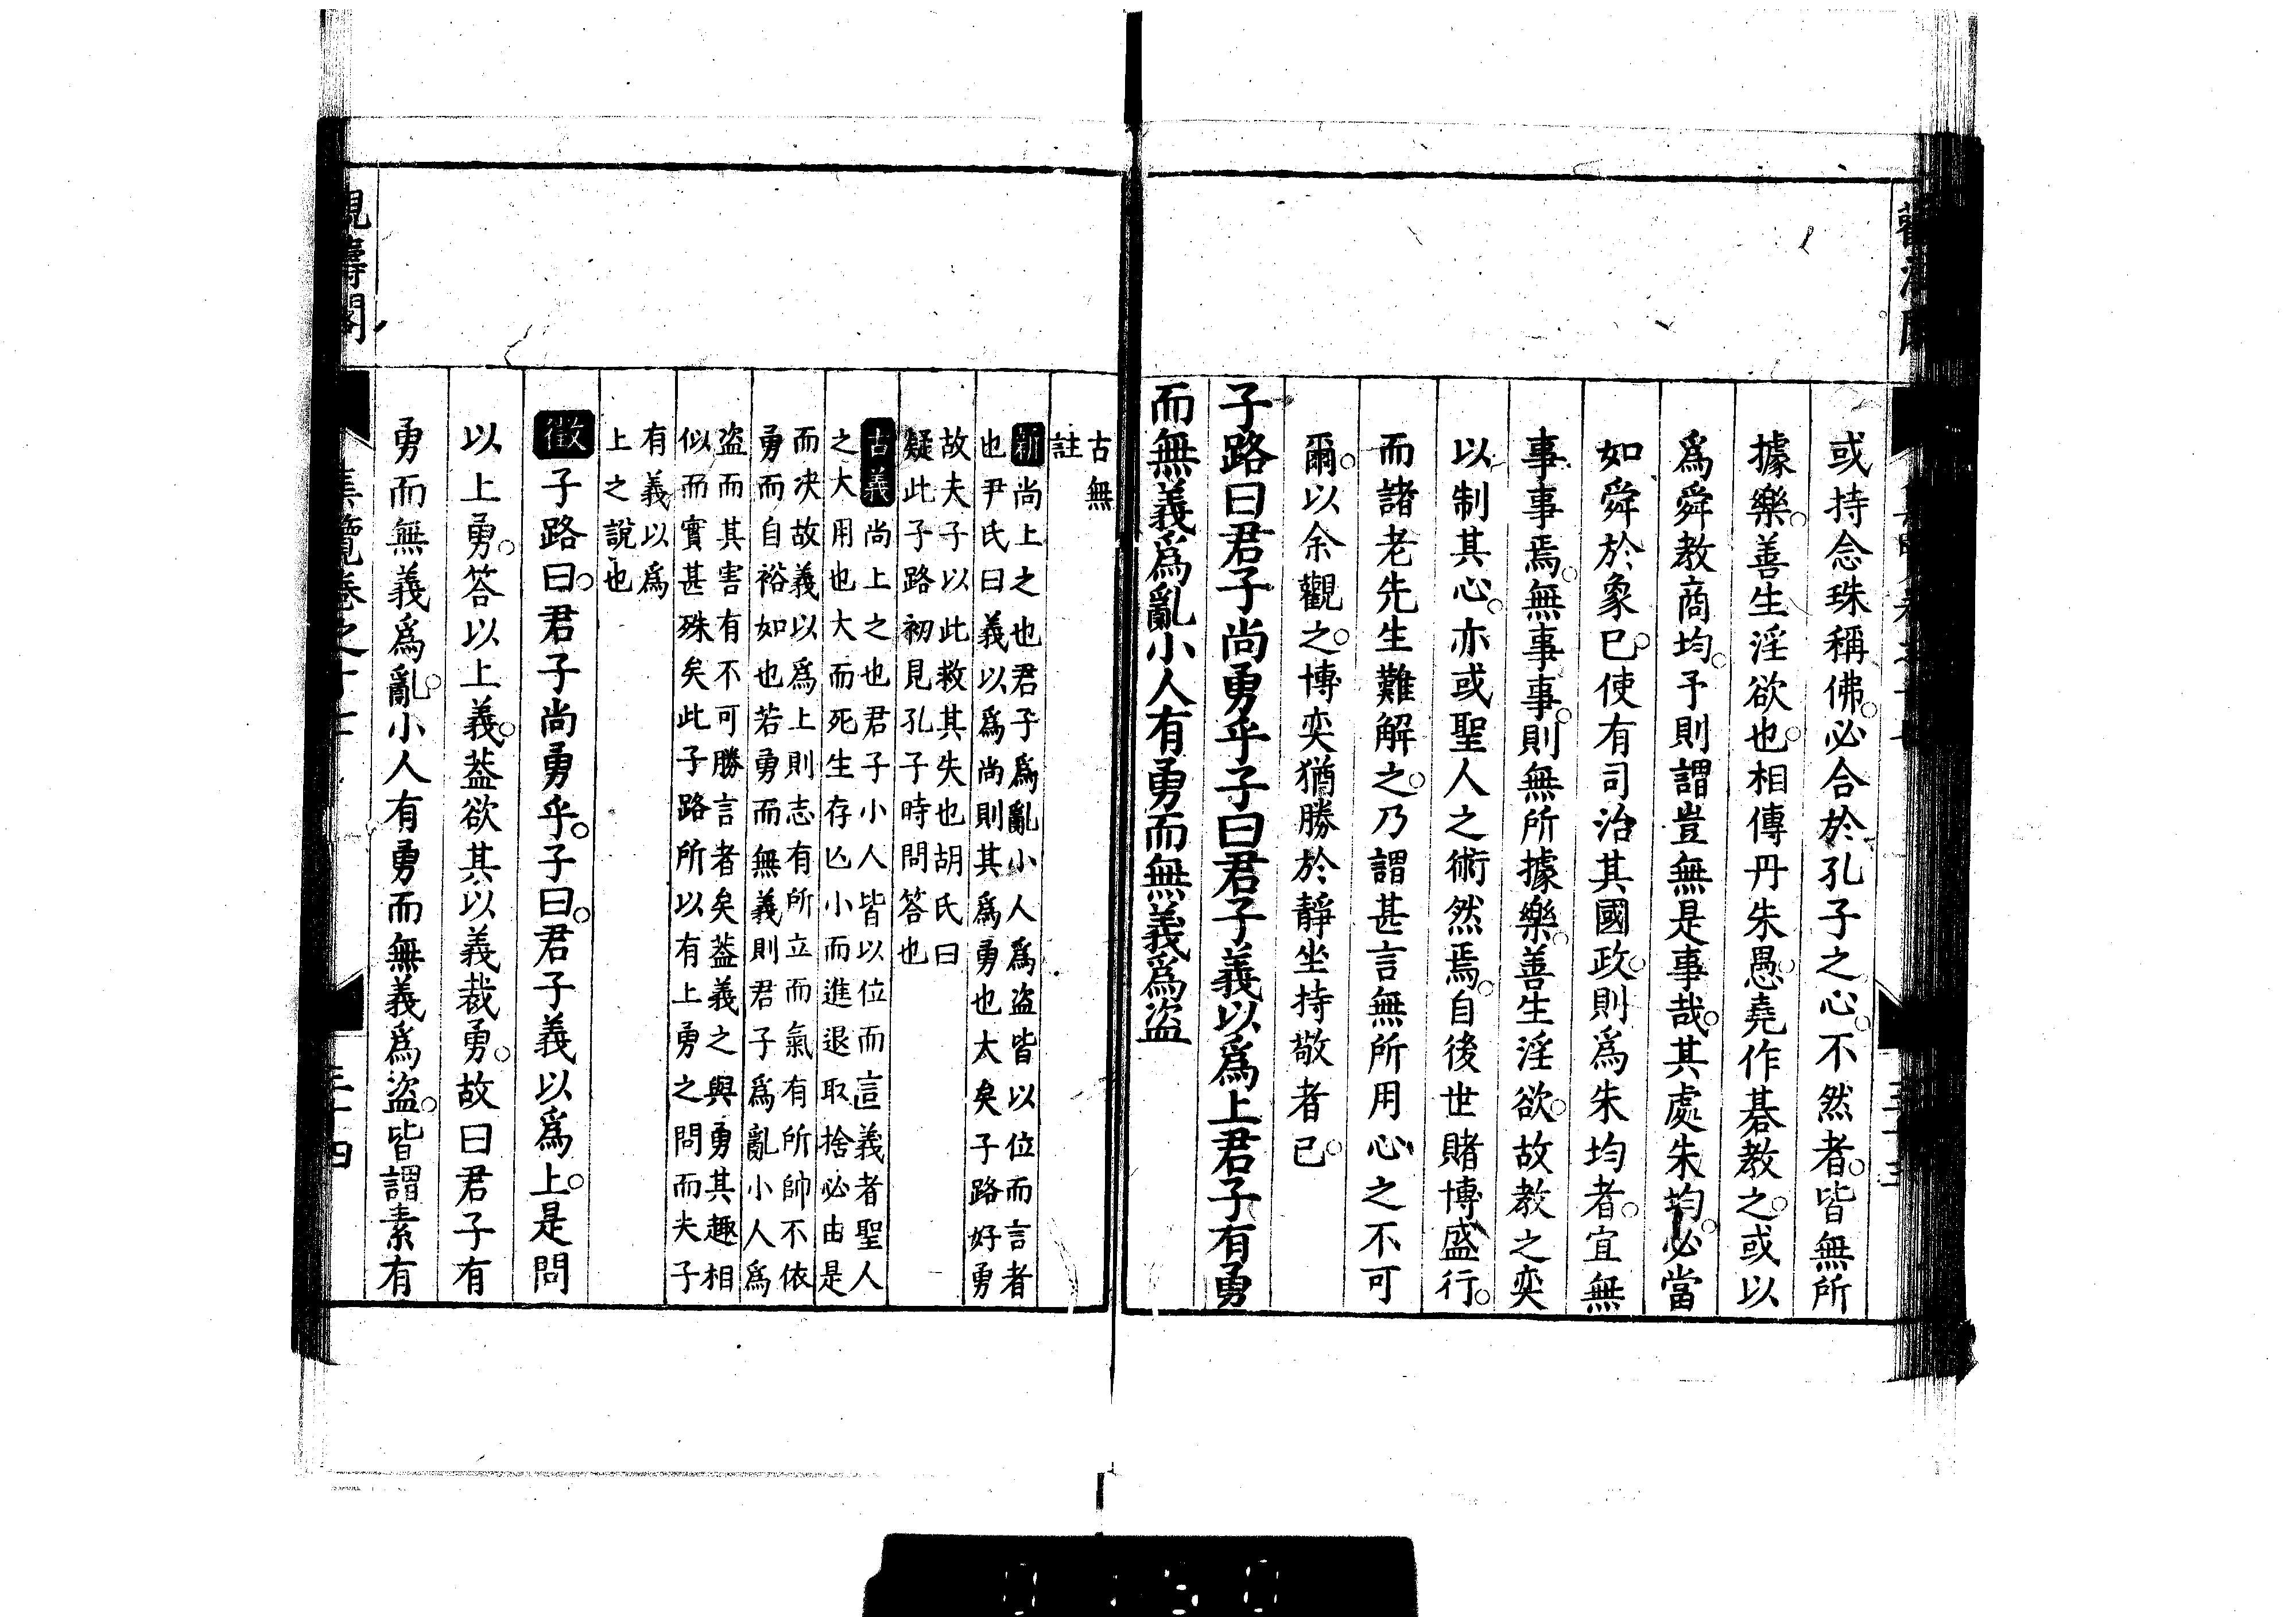 或持念珠稱佛必合於孔子之心不然者皆無所
據樂善生淫欲也相傳丹朱愚堯作碁教之或以
爲舜教商均予則謂豈無是事哉其處朱均必當
如舜於象已使有司治其國政則爲朱均者宜無
事事焉無事事則無所據樂善生淫欲故教之奕
以制其心亦或聖人之術然焉自後世賭博盛行
而諸老先生難解之乃謂甚言無所用心之不可
爾以余觀之博奕猶勝於靜坐持敬者已
子路曰君子尚勇乎子曰君子義以爲上君子有勇
而無義爲亂小人有勇而無義爲盜
古無
註
新尚上之也君子爲亂小人爲盜皆以位而言者
也尹氏曰義以爲尚則其爲勇也大矣子路好勇
故夫子以此救其失也胡氏曰
疑此子路初見孔子時問答也
古義尚上之也君子小人皆以位而言義者聖人
之大用也大而死生存亾小而進退取捨必由是
而决故義以爲上則志有所立而氣有所帥不依
勇而自裕如也若勇而無義則君子爲亂小人爲
盜而其害有不可勝言者矣葢義之與勇其趣相
似而實甚殊矣此子路所以有上勇之問而夫子
有義以爲
上之說也
徵子路曰君子尚勇乎子曰君子義以爲上是問
以上勇答以上義葢欲其以義裁勇故曰君子有
勇而無義爲亂小人有勇而無義爲盜皆謂素有
觀濤閣
集覽卷之十七
三十四